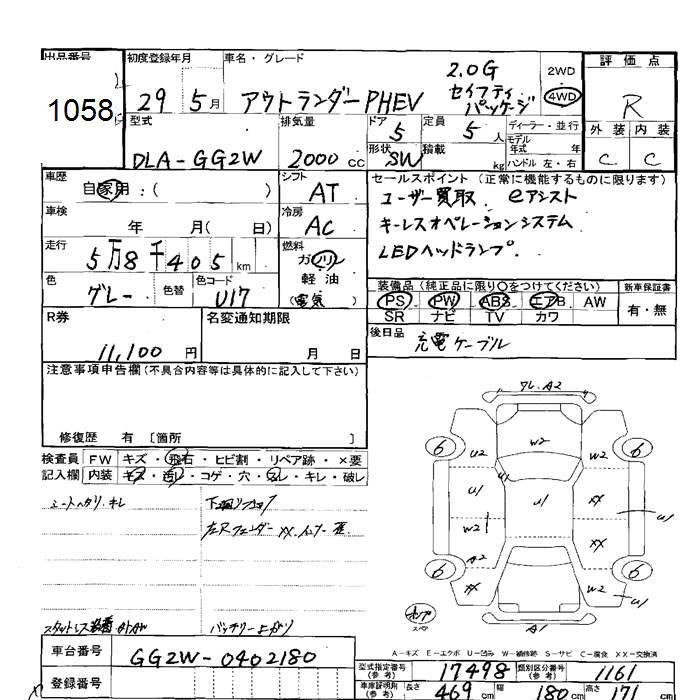 出品番号 初度登録年月 車名・グレード 評価点
1058
29 5月 アウトランダーPHEV 2.0G セイフティパッケージ 2WD 4WD R
型式 排気量 ドア 定員 ディーラー・並行 外装 内装
DLA-GG2W 2000cc 5 5人 モデル年式 年式 C C
形状 SW 積載 kg ハンドル 左・右
車歴 自家用:( ) シフト AT
セールスポイント(正常に機能するものに限ります)
ユーザー買取 eアシスト
キーレスオペレーションシステム
LEDヘッドランプ.
車検 年 月( 日) 冷房 AC
走行 5万8千405km 燃料 ガソリン 軽油 (電気)
色 グレー 色替 色コード U17
装備品(純正品に限り○をつけてください) 新車保証書
PS PW ABS エアB AW 有・無
SR ナビ TV カワ
R券 11,100円 名変通知期限 月 日
後日品 充電ケーブル
注意事項申告欄(不具合内容等は具体的に記入して下さい)
修復歴 有 〔箇所 〕
検査員 FW キズ・飛石・ヒビ割・リペア跡・×要
記入欄 内装 キズ・汚レ・コゲ・穴・スレ・キレ・破レ
ワレ.A2
6 U2 W2 W2 6
U1 U1 XX U1
W2 XX
A2
6 XX W2 U1 6
A1
A-キズ E-エクボ U-凹み W-補修跡 S-サビ C-腐食 XX-交換済
車台番号 GG2W-0402180
登録番号
型式指定番号(参考) 17498 類別区分番号(参考) 1161
車庫証明用(参考) 長さ 469cm 幅 180cm 高さ 171cm